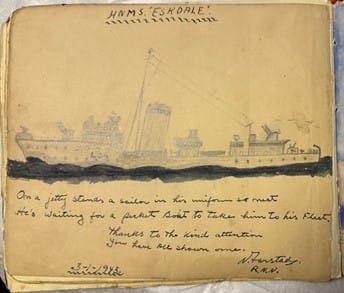 H.N.M.S. 'ESKDALE'.
On a jetty stands a sailor in his uniform so neat
He's waiting for a picket Boat to take him to his Fleet.
Thanks to the kind attention
You have all shown me.
R.N.N.
3-1-1943